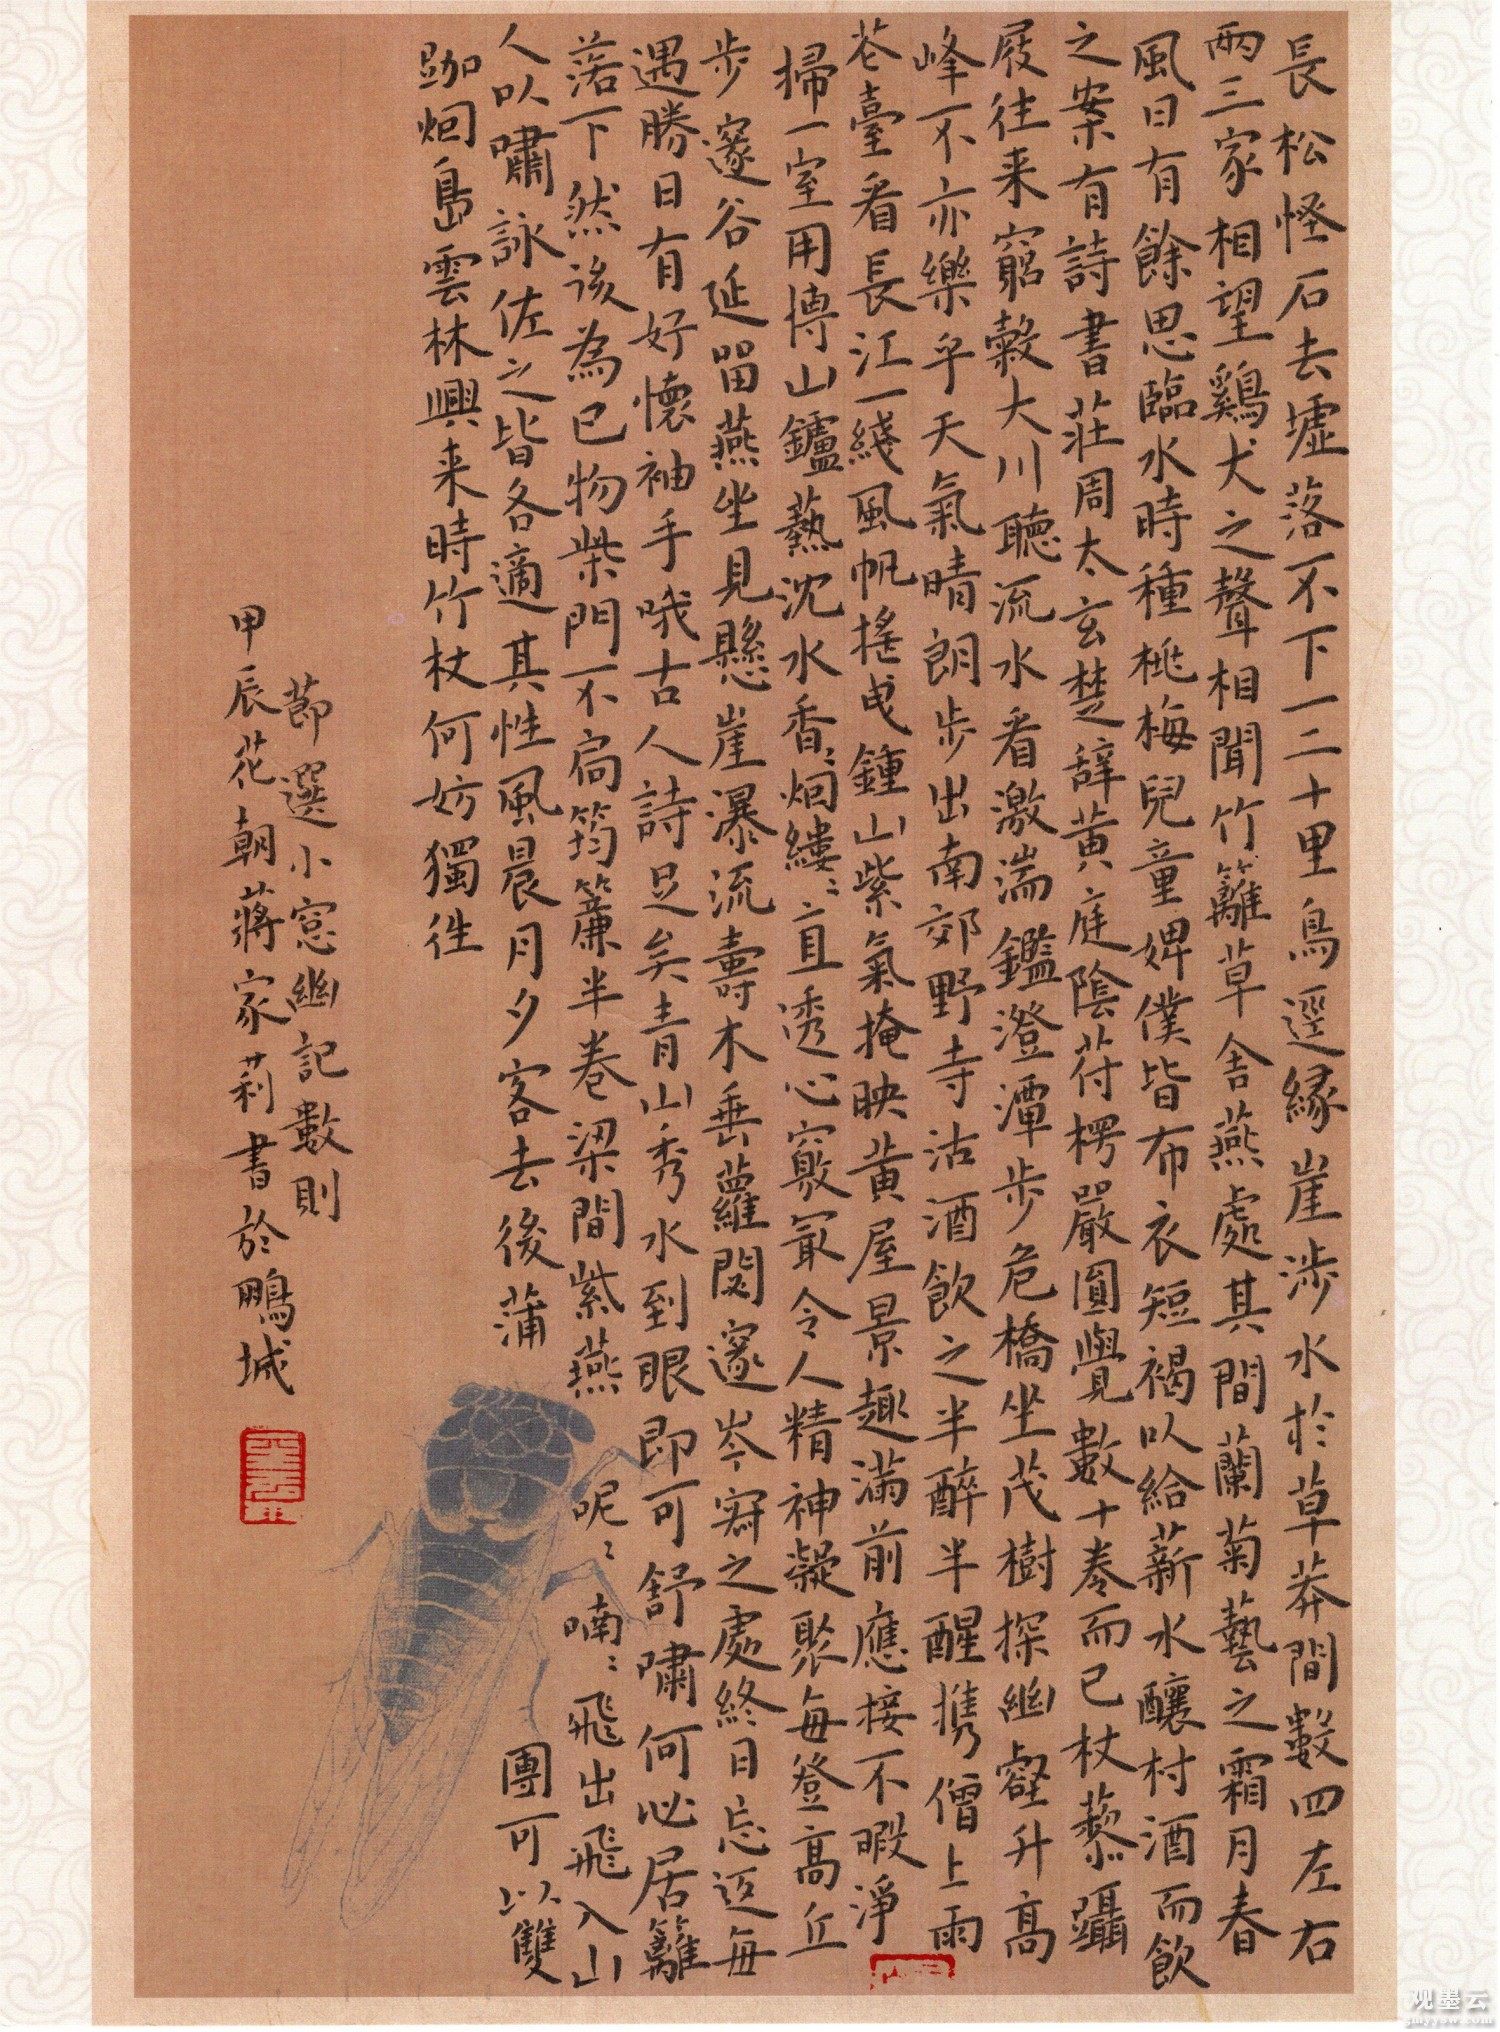 長松怪石去墟落不下一二十里鳥逕緣崖涉水於草莽間數四左右
兩三家相望鷄犬之聲相聞竹籬草舍燕處其間蘭菊藝之霜月春
風日有餘思臨水時種桃梅兒童婢僕皆布衣短褐以給薪水釀村酒而飲
之案有詩書莊周太玄楚辭黃庭陰苻楞嚴圓覺數十卷而已杖藜躡
屐往来窮穀大川聽流水看激湍鑑澄潭步危橋坐茂樹探幽壑升高
峰不亦樂乎天氣晴朗步出南郊野寺沽酒飲之半醉半醒携僧上雨
花臺看長江一綫風帆搖曳鍾山紫氣掩映黃屋景趣滿前應接不暇淨
掃一室用博山鑪爇沈水香香烟縷縷直透心竅最令人精神凝聚每登高丘
步邃谷延留燕坐見懸崖瀑流壽木垂蘿閟邃岑寂之處終日忘返每
遇勝日有好懷袖手哦古人詩足矣青山秀水到眼即可舒嘯何必居籬
落下然後為己物柴門不扃筠簾半卷梁間紫燕呢呢喃喃飛出飛入山
人以嘯詠佐之皆各適其性風晨月夕客去後蒲團可以雙
跏烟島雲林興来時竹杖何妨獨往
節選小窓幽記數則
甲辰花朝蔣家莉書於鵬城
观墨云
gmyysw.com